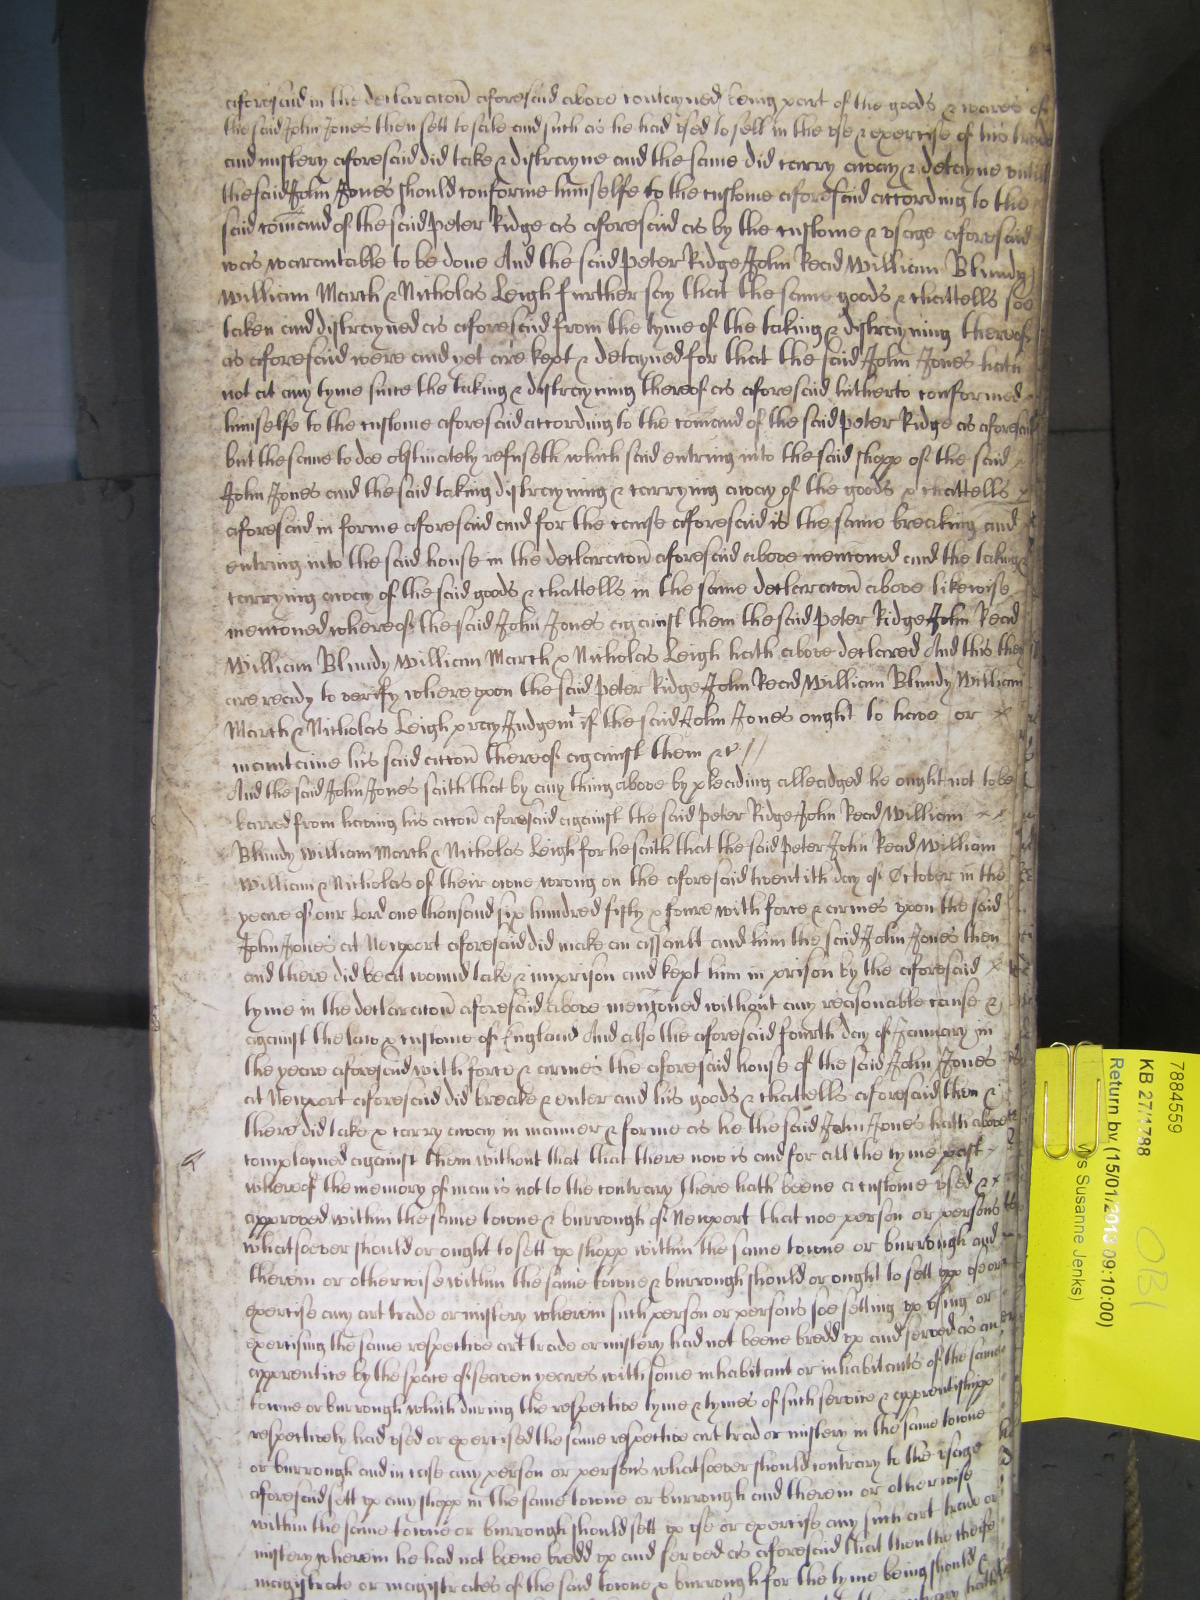 aforesaid in the declaracon aforesaid above conteyned being part of the goods & wares of
the said John Jones then sett to sale and such as he had used to sell in the use & exercise of his trade
and mistery aforesaid did take & distrayne and the same did carry away & detayne untill
the said John Jones should conforme himselfe to the custome aforesaid according to the
said comand of the said Peter Ridge as aforesaid as by the custome & usage aforesaid
was warantable to be done And the said Peter Ridge John Read William Blundy
William March & Nicholas Leigh further say that the same goods & chattells soe
taken and distrayned as aforesaid from the tyme of the taking & distrayning thereof
as aforesaid were and yet are kept & detayned for that the said John Jones hath
not at any tyme since the taking & distrayning thereof as aforesaid hitherto conformed
himselfe to the custome aforesaid according to the comand of the said Peter Ridge as aforesaid
but the same to doe obstinately refuseth which said entring into the said shopp of the said
John Jones and the said taking distrayning & carrying away of the goods & chattells
aforesaid in forme aforesaid and for the cause aforesaid is the same breaking and
entring into the said house in the declaracon aforesaid above menconed and the taking &
carrying away of the said goods & chattells in the same declaracon above likewise
menconed whereof the said John Jones against them the said Peter Ridge John Read
William Blundy William March & Nicholas Leigh hath above declared And this they
are ready to verify whereupon the said Peter Ridge John Read William Blundy William
March & Nicholas Leigh pray Judgemt if the said John Jones ought to have or
maintaine his said accon thereof against them &c //
And the said John Jones saith that by any thing above by pleading alleadged he ought not to be
barred from having his accon aforesaid against the said Peter Ridge John Read William
Blundy William March & Nicholas Leigh for he saith that the said Peter John Read William
William & Nicholas of their owne wrong on the aforesaid twentith day of October in the
yeare of our Lord one thousand six hundred fifty & foure with force & armes upon the said
John Jones at Newport aforesaid did make an assault and him the said John Jones then
and there did beat wound take & imprison and kept him in prison by the aforesaid
tyme in the declaracon aforesaid above menconed without any reasonable cause &
against the law & custome of England And also the aforesaid fourth day of January in
the yeare aforesaid with force & armes the aforesaid house of the said John Jones
at Newport aforesaid did breake & enter and his goods & chattells aforesaid then &
there did take & carry away in manner & forme as he the said John Jones hath above
complained against them without that that there now is and for all the tyme past
whereof the memory of man is not to the contrary there hath beene a custome used &
approved within the same towne & burrough of Newport that noe person or persons
whatsoever should or ought to sett up shopp within the same towne or burrough and
therein or otherwise within the same towne & burrough should or ought to sett upp use or
exercise any art trade or mistery wherein such person or persons soe setting up using or
exercising the same respective art trade or mistery had not beene bredd up and served as an
apprentice by the space of seaven yeares with some inhabitant or inhabitants of the same
towne or burrough which during the respective tyme & tymes of such service & apprentishipp
respectively had used or exercised the same respective art trad or mistery in the same towne
or burrough and in case any person or persons whatsoever should contrary to the usage
aforesaid sett up any shopp in the same towne or burrough and therein or otherwise
within the same towne or burrough should sett up use or exercise any such art trade or
mistery wherein he had not beene bredd up and served as aforesaid that then the cheife
magistrate or magistrates of the said towne & burrough for the tyme being should &
7884559
KB 27/1788
Return by (15/01/2013 09:10:00)
Susanne Jenks)
OBI